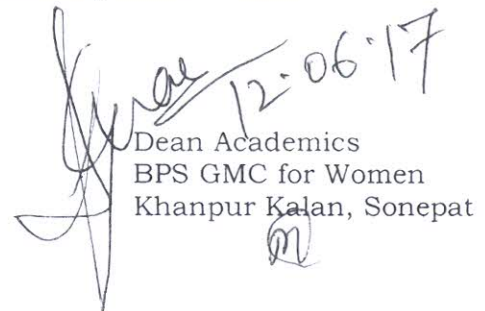 12.06.17
Dean Academics
BPS GMC for Women
Khanpur Kalan, Sonepat